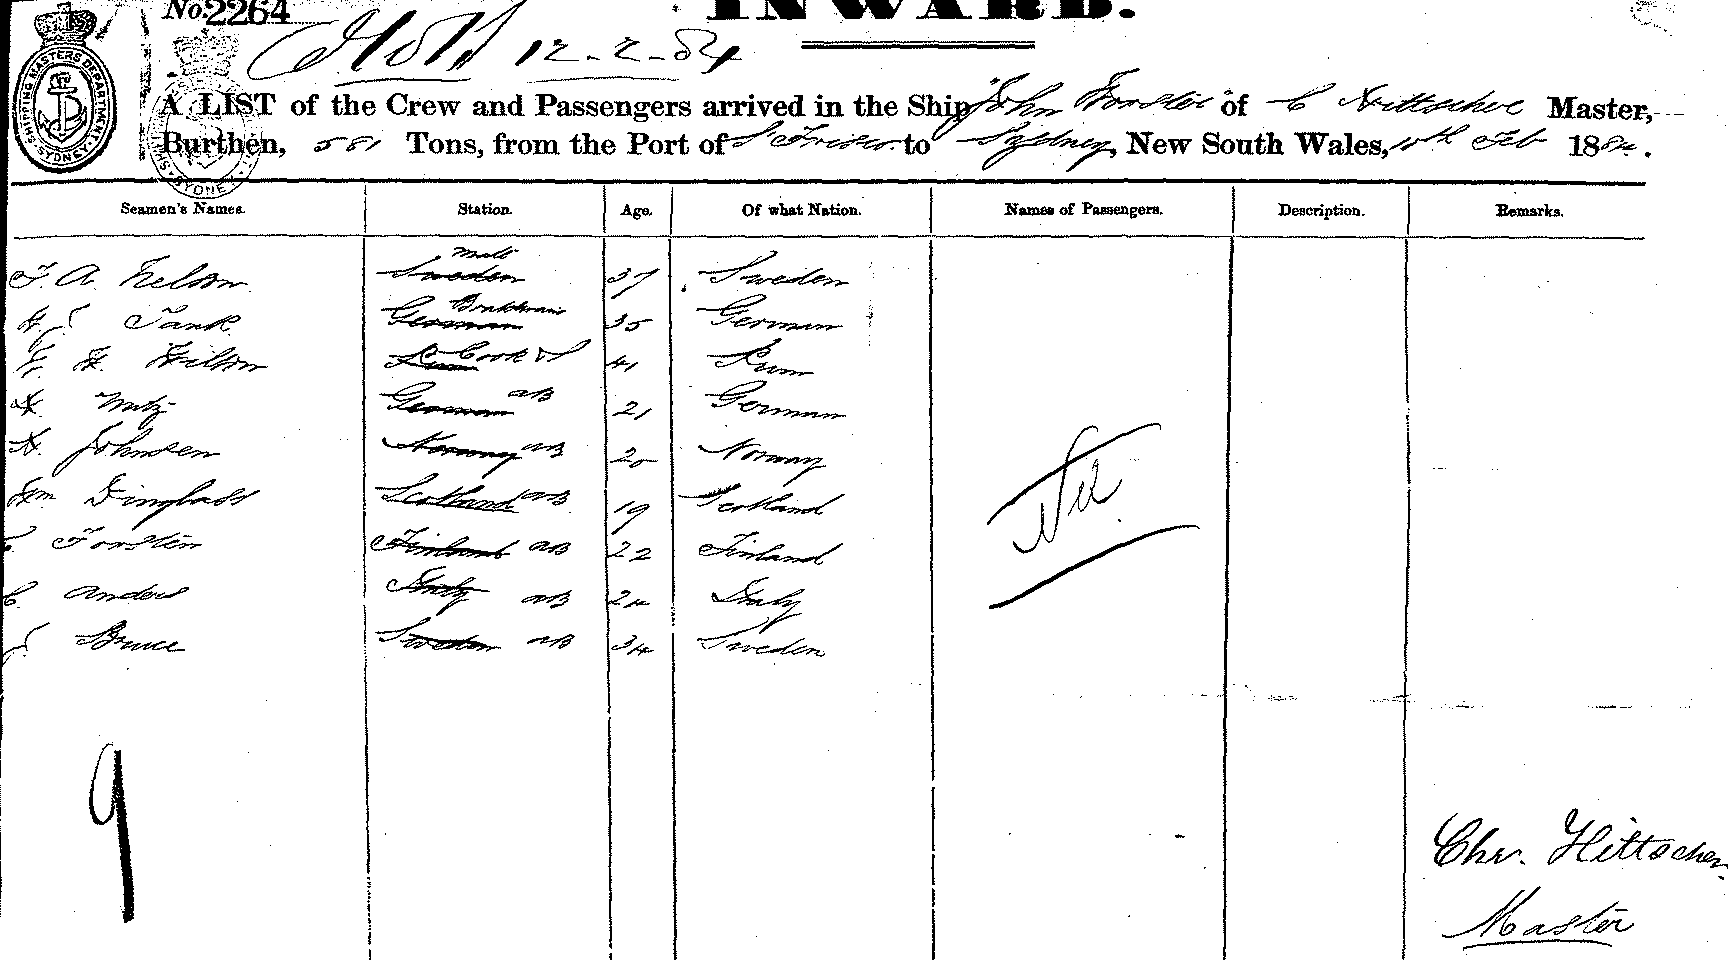 No. 2264
INWARD.
12-2-84
SHIPPING MASTERS DEPARTMENT SYDNEY
A LIST of the Crew and Passengers arrived in the Ship "John Forster" of C Hittscher Master,
Burthen, 581 Tons, from the Port of S Frisco to Sydney, New South Wales, 11th Feb 1884.
Seamen's Names. Station. Age. Of what Nation. Names of Passengers. Description. Remarks.
F. A. Nelson Sweden Mate 37 Sweden
Tank German 35 German
H. Wilson Cook & S 41
German AB 21 German
Johnsen Norway AB 20 Norway
Wm Scotland AB 19 Scotland
Nil
Forstén Finland AB 22 Finland
C. Anders Italy AB 24 Italy
J Bruce Sweden AB 34 Sweden
9
Chr. Hittscher
Master